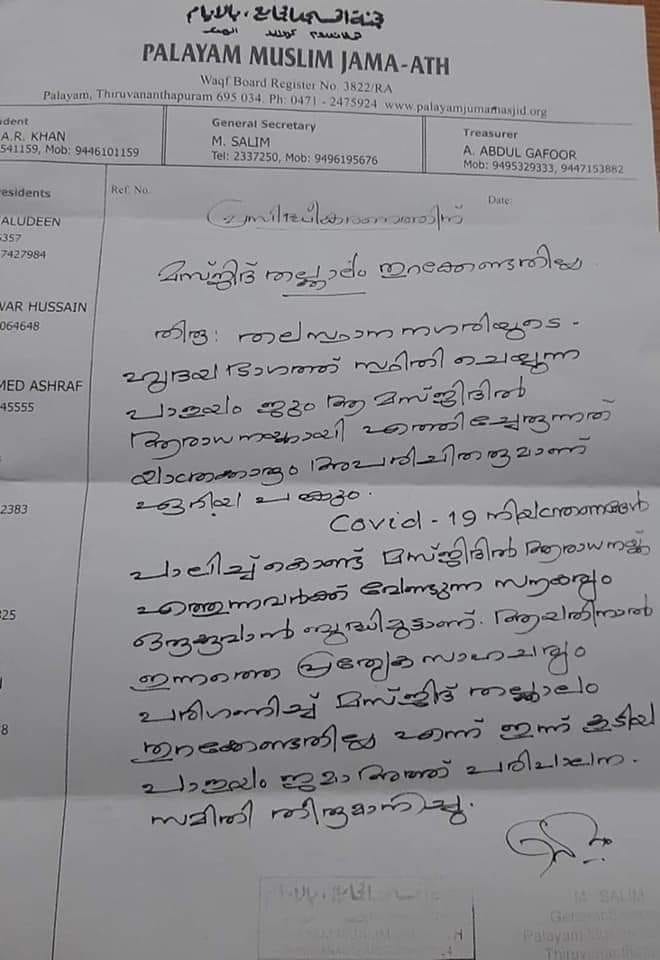 PALAYAM MUSLIM JAMA-ATH
Waqf Board Register No. 3822/RA
Palayam, Thiruvananthapuram 695 034. Ph: 0471 - 2475924 www.palayamjumamasjid.org
ident
A.R. KHAN
541159, Mob: 9446101159
General Secretary
M. SALIM
Tel: 2337250, Mob: 9496195676
Treasurer
A. ABDUL GAFOOR
Mob: 9495329333, 9447153882
esidents
ALUDEEN
6357
7427984
WAR HUSSAIN
064648
MED ASHRAF
45555
2383
825
8
Ref. No.
Date:
പ്രസിദ്ധീകരണത്തിന്
മസ്ജിദ് തല്ക്കാലം തുറക്കേണ്ടതില്ല
തിരു: തലസ്ഥാന നഗരിയുടെ -
ഹൃദയ ഭാഗത്ത് സ്ഥിതി ചെയ്യുന്ന
പാളയം ജുമാ മസ്ജിദിൽ
ആരാധനയ്ക്കായി എത്തിച്ചേരുന്നത്
യാത്രക്കാരും അപരിചിതരുമാണ്
ഏറിയ പങ്കും.
Covid - 19 നിയന്ത്രണങ്ങൾ
പാലിച്ച് കൊണ്ട് മസ്ജിദിൽ ആരാധനയ്ക്ക്
എത്തുന്നവർക്ക് വേണ്ടുന്ന സൗകര്യം
ഒരുക്കുവാൻ ബുദ്ധിമുട്ടാണ്. ആയതിനാൽ
ഇന്നത്തെ പ്രത്യേക സാഹചര്യം
പരിഗണിച്ച് മസ്ജിദ് തല്ക്കാലം
തുറക്കേണ്ടതില്ല എന്ന് ഇന്ന് കൂടിയ
പാളയം ജമാഅത്ത് പരിപാലന -
സമിതി തീരുമാനിച്ചു.
M. SALIM
General
Palayam